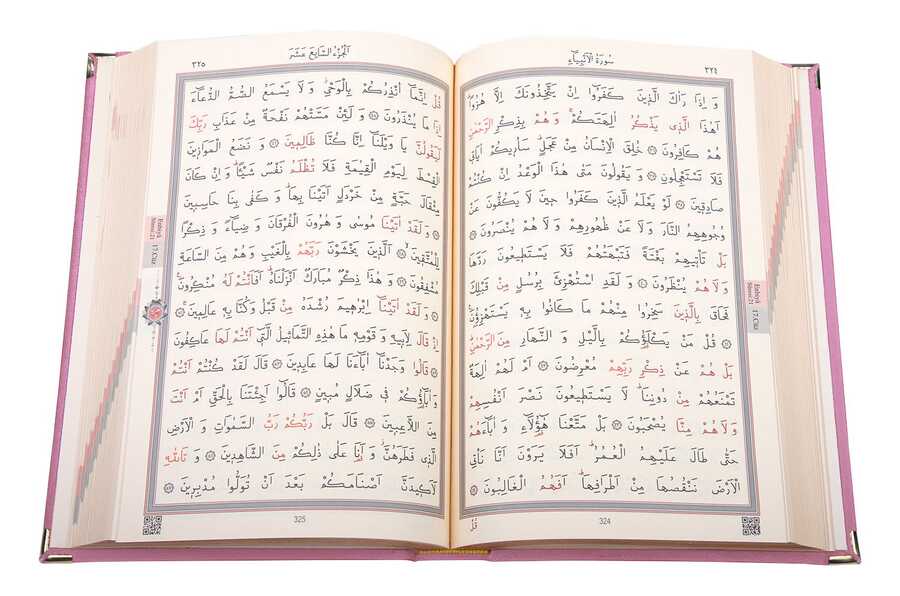 سُورَةُ الْاَنْبِيَٓاءِ ٣٢٤
وَ اِذَا رَاٰكَ الَّذٖينَ كَفَرُٓوا اِنْ يَتَّخِذُونَكَ اِلَّا هُزُوًاۜ
اَهٰذَا الَّذٖي يَذْكُرُ اٰلِهَتَكُمْۚ وَ هُمْ بِذِكْرِ الرَّحْمٰنِ
هُمْ كَافِرُونَ ﴿٣٦﴾ خُلِقَ الْاِنْسَانُ مِنْ عَجَلٍۜ سَاُرٖيكُمْ اٰيَاتٖي
فَلَا تَسْتَعْجِلُونِ ﴿٣٧﴾ وَ يَقُولُونَ مَتٰى هٰذَا الْوَعْدُ اِنْ كُنْتُمْ
صَادِقٖينَ ﴿٣٨﴾ لَوْ يَعْلَمُ الَّذٖينَ كَفَرُوا حٖينَ لَا يَكُفُّونَ عَنْ
وُجُوهِهِمُ النَّارَ وَ لَا عَنْ ظُهُورِهِمْ وَ لَا هُمْ يُنْصَرُونَ ﴿٣٩﴾
بَلْ تَأْتٖيهِمْ بَغْتَةً فَتَبْهَتُهُمْ فَلَا يَسْتَطٖيعُونَ رَدَّهَا
وَ لَا هُمْ يُنْظَرُونَ ﴿٤٠﴾ وَ لَقَدِ اسْتُهْزِئَ بِرُسُلٍ مِنْ قَبْلِكَ
فَحَاقَ بِالَّذٖينَ سَخِرُوا مِنْهُمْ مَا كَانُوا بِهٖ يَسْتَهْزِؤُ۫نَ
﴿٤١﴾ قُلْ مَنْ يَكْلَؤُ۬كُمْ بِالَّيْلِ وَ النَّهَارِ مِنَ الرَّحْمٰنِۜ
بَلْ هُمْ عَنْ ذِكْرِ رَبِّهِمْ مُعْرِضُونَ ﴿٤٢﴾ اَمْ لَهُمْ اٰلِهَةٌ
تَمْنَعُهُمْ مِنْ دُونِنَاۜ لَا يَسْتَطٖيعُونَ نَصْرَ اَنْفُسِهِمْ
وَ لَا هُمْ مِنَّا يُصْحَبُونَ ﴿٤٣﴾ بَلْ مَتَّعْنَا هٰٓؤُ۬لَٓاءِ وَ اٰبَٓاءَهُمْ
حَتّٰى طَالَ عَلَيْهِمُ الْعُمُرُۜ اَفَلَا يَرَوْنَ اَنَّا نَأْتِي
الْاَرْضَ نَنْقُصُهَا مِنْ اَطْرَافِهَاۜ اَفَهُمُ الْغَالِبُونَ ﴿٤٤﴾
قُلْ
324
Enbiyâ
Sûresi 21
17.Cüz
اَلْجُزْءُ السَّابِعَ عَشَرَ ٣٢٥
قُلْ اِنَّمَٓا اُنْذِرُكُمْ بِالْوَحْيِۘ وَ لَا يَسْمَعُ الصُّمُّ الدُّعَٓاءَ
اِذَا مَا يُنْذَرُونَ ﴿٤٥﴾ وَ لَئِنْ مَسَّتْهُمْ نَفْحَةٌ مِنْ عَذَابِ رَبِّكَ
لَيَقُولُنَّ يَا وَيْلَنَٓا اِنَّا كُنَّا ظَالِمٖينَ ﴿٤٦﴾ وَ نَضَعُ الْمَوَازٖينَ
الْقِسْطَ لِيَوْمِ الْقِيٰمَةِ فَلَا تُظْلَمُ نَفْسٌ شَيْـًٔاۜ وَ اِنْ كَانَ
مِثْقَالَ حَبَّةٍ مِنْ خَرْدَلٍ اَتَيْنَا بِهَاۜ وَ كَفٰى بِنَا حَاسِبٖينَ
﴿٤٧﴾ وَ لَقَدْ اٰتَيْنَا مُوسٰى وَ هٰرُونَ الْفُرْقَانَ وَ ضِيَٓاءً وَ ذِكْرًا
لِلْمُتَّقٖينَۙ ﴿٤٨﴾ اَلَّذٖينَ يَخْشَوْنَ رَبَّهُمْ بِالْغَيْبِ وَ هُمْ مِنَ السَّاعَةِ
مُشْفِقُونَ ﴿٤٩﴾ وَ هٰذَا ذِكْرٌ مُبَارَكٌ اَنْزَلْنَاهُۜ اَفَاَنْتُمْ لَهُ مُنْكِرُونَ۟
﴿٥٠﴾ وَ لَقَدْ اٰتَيْنَٓا اِبْرٰهٖيمَ رُشْدَهُ مِنْ قَبْلُ وَ كُنَّا بِهٖ عَالِمٖينَۚ ﴿٥١﴾
اِذْ قَالَ لِاَبٖيهِ وَ قَوْمِهٖ مَا هٰذِهِ التَّمَاثٖيلُ الَّتٖٓي اَنْتُمْ لَهَا عَاكِفُونَ
﴿٥٢﴾ قَالُوا وَجَدْنَٓا اٰبَٓاءَنَا لَهَا عَابِدٖينَ ﴿٥٣﴾ قَالَ لَقَدْ كُنْتُمْ اَنْتُمْ
وَ اٰبَٓاؤُ۬كُمْ فٖي ضَلَالٍ مُبٖينٍ ﴿٥٤﴾ قَالُٓوا اَجِئْتَنَا بِالْحَقِّ اَمْ اَنْتَ
مِنَ اللَّاعِبٖينَ ﴿٥٥﴾ قَالَ بَلْ رَبُّكُمْ رَبُّ السَّمٰوَاتِ وَ الْاَرْضِ
الَّذٖي فَطَرَهُنَّۘ وَ اَنَا۬ عَلٰى ذٰلِكُمْ مِنَ الشَّاهِدٖينَ ﴿٥٦﴾ وَ تَاللّٰهِ
لَاَكٖيدَنَّ اَصْنَامَكُمْ بَعْدَ اَنْ تُوَلُّوا مُدْبِرٖينَ ﴿٥٧﴾
325
Enbiyâ
Sûresi 21
17.Cüz